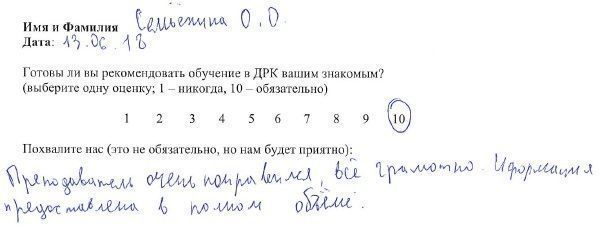 Имя и Фамилия Семёхина О. О.
Дата: 13.06.18
Готовы ли вы рекомендовать обучение в ДРК вашим знакомым?
(выберите одну оценку; 1 – никогда, 10 – обязательно)
1 2 3 4 5 6 7 8 9 10
Похвалите нас (это не обязательно, но нам будет приятно):
Преподаватель очень понравился, всё грамотно. Иформация
предоставлена в полном объёме.